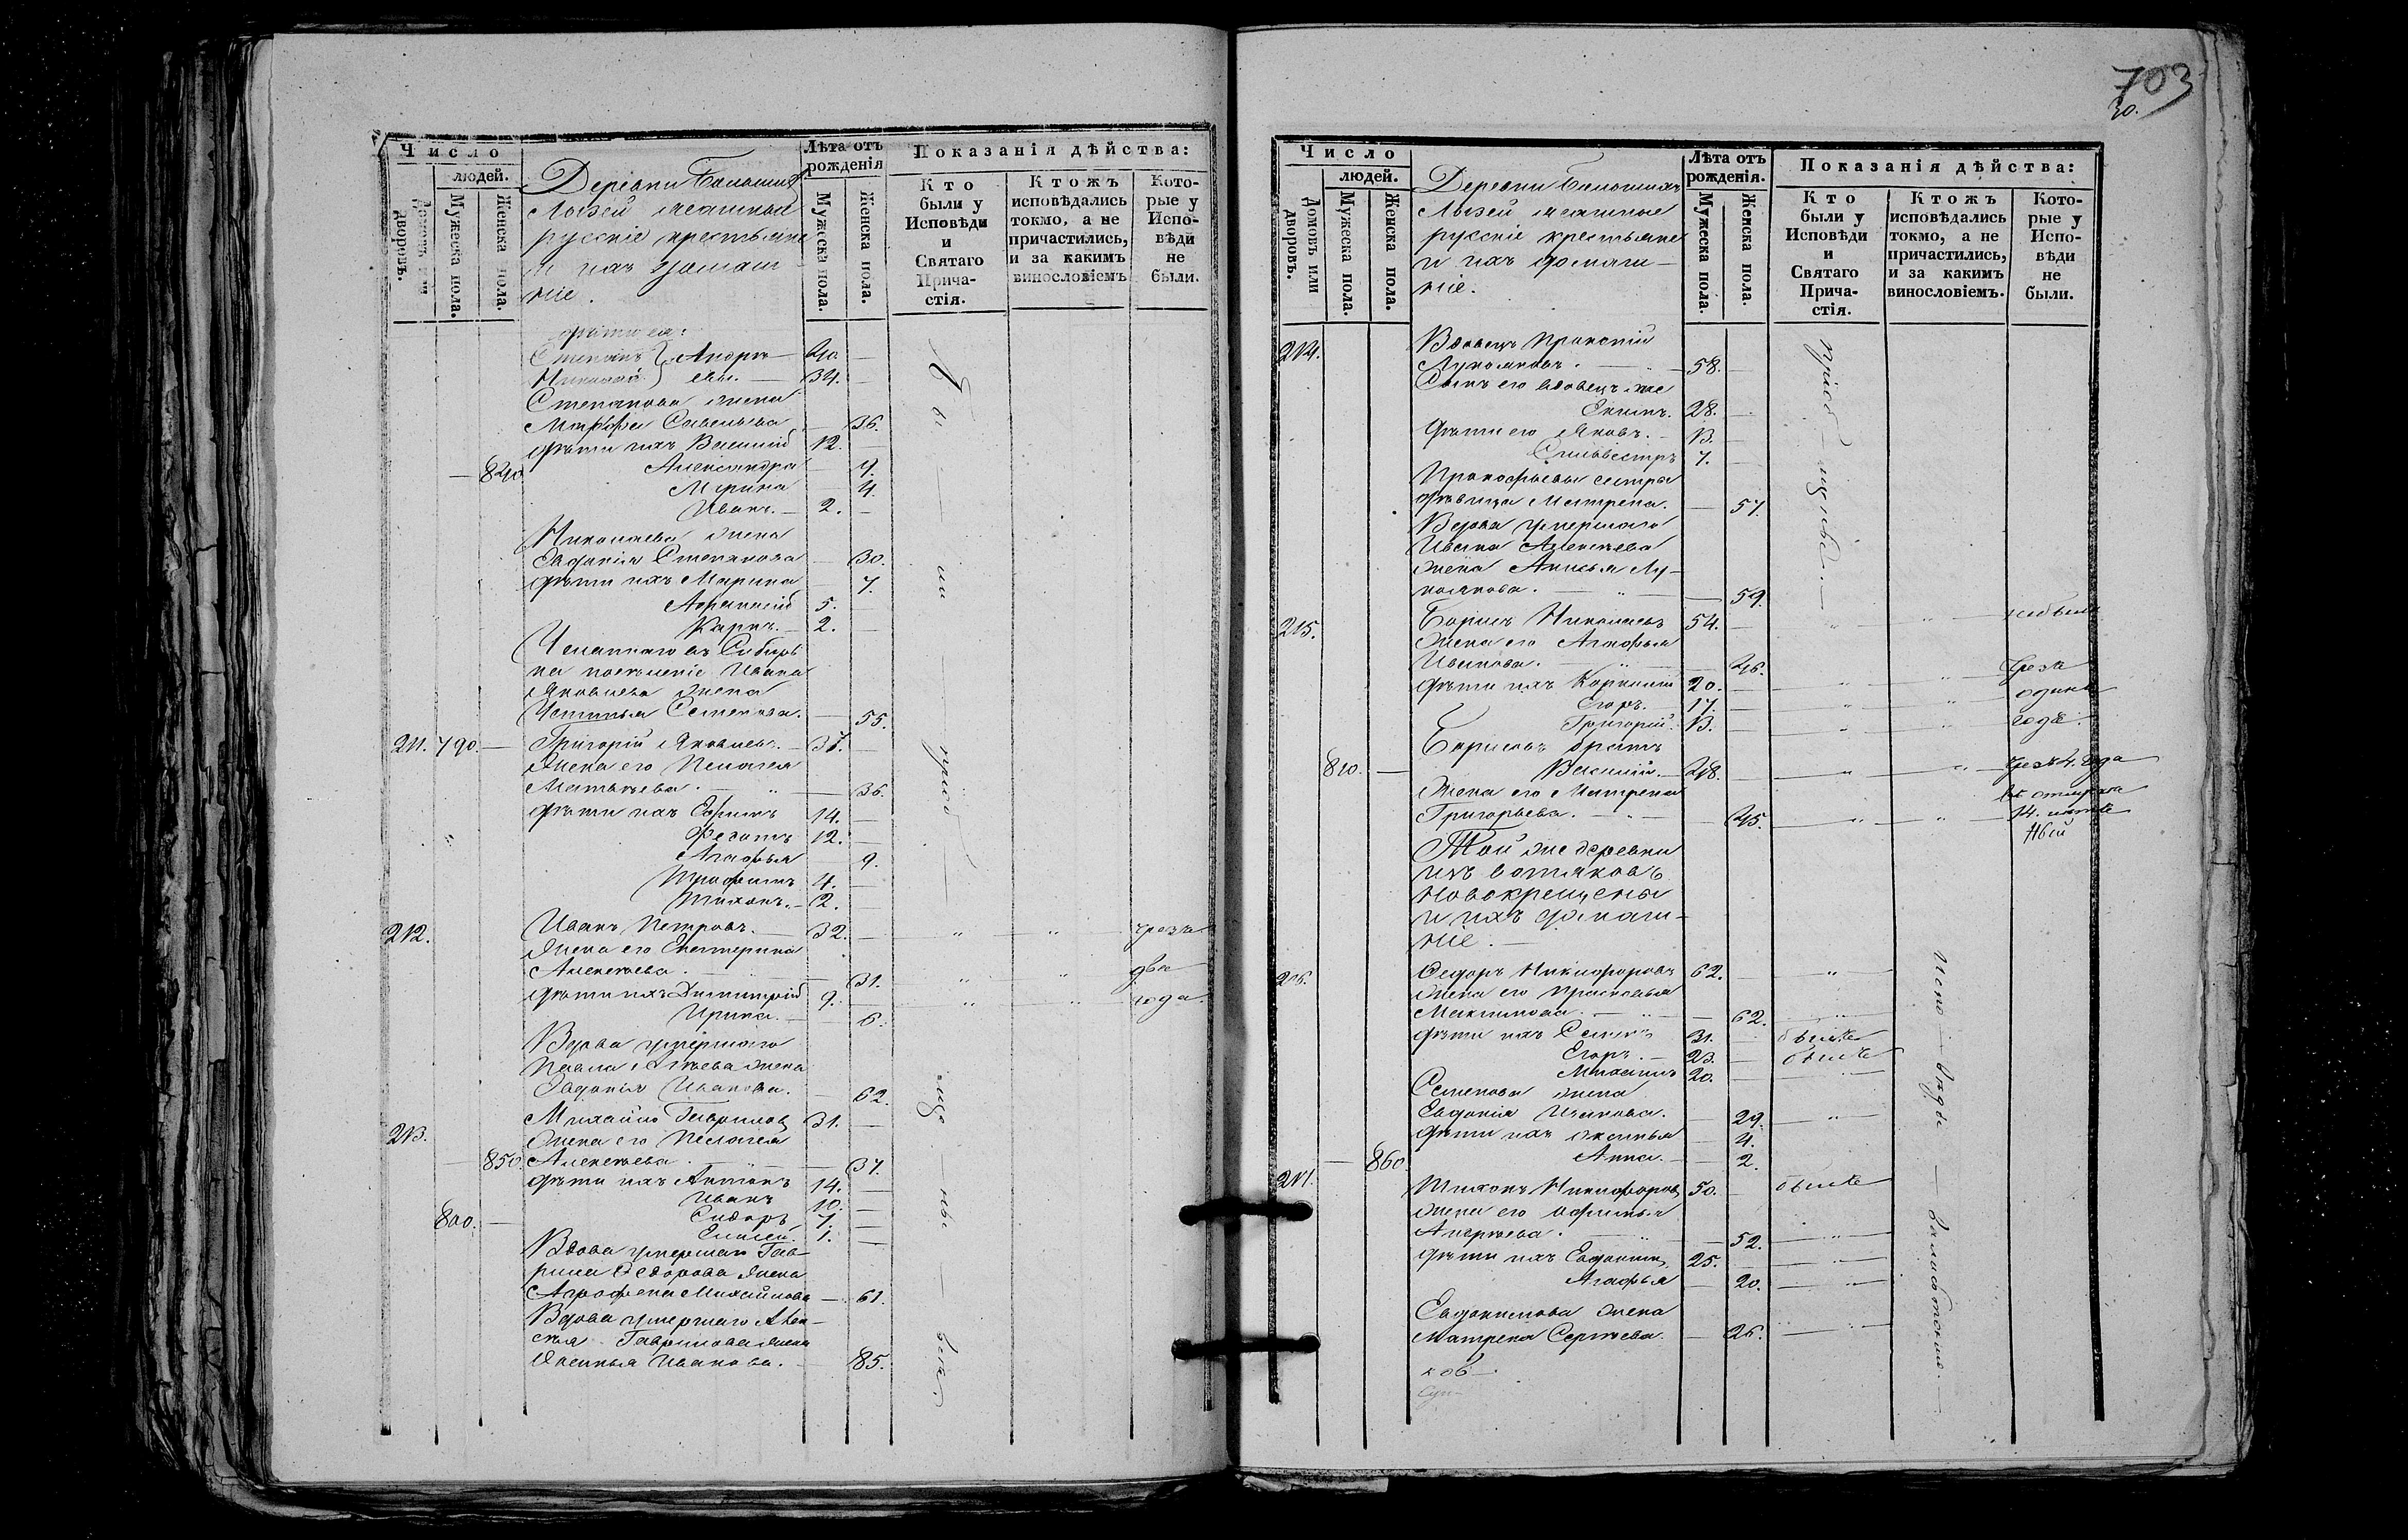 Число
людей.
Домовъ или дворовъ.
Мужеска пола.
Женска пола.
Деревни Большихъ
Лызей
русскіе крестьяне
и ихъ домаш
ніе.
Лѣта отъ рожденія
Мужеска пола.
Женска пола.
Показанія дѣйства:
Кто были у Исповѣди и Святаго Причастія.
Ктожъ исповѣдались токмо, а не причастились, и за какимъ винословіемъ
Которые у Исповѣди не были.
дѣти ея:
Степанъ } Андре 40.
Николай } евы. 34.
Степанова жена
Савельева 36.
дѣти ихъ Василій 12.
840 Александра
Марина 4.
Иванъ. 2.
Николаева жена
Евдокія Степанова 30.
дѣти ихъ Марина 7.
5.
Карпъ. 2.
въ Сибирь
на поселеніе Ивана
Яковлева жена
Устинья Семенова. 55.
211. 790. Григорій Яковлевъ. 37.
Жена его Пелагея
Матвѣева. 36.
дѣти ихъ Ефимъ 14.
Федотъ 12.
Агафья 9.
Трофимъ 4.
Тихонъ. 2.
212. Иванъ Петровъ. 32. чрезъ
Жена его Екатерина
Алексѣева. 31. два
дѣти ихъ Димитрій 9. года.
Ирина. 6.
Вдова умершаго
Павла жена
Евдокія Иванова. 62.
213. Михайло Гавриловъ 31.
Жена его Пелагея
850. Алексѣева. 37.
дѣти ихъ Антонъ 14.
Иванъ 10.
800. Сидоръ 7.
1.
Вдова умершаго Гав-
рила Ѳедорова жена
Агрофена Михайлова 61.
Вдова умершаго Алек-
сѣя Гаврилова жена
Аксинья Иванова. 85.
Бы ли пріоб ще ны
703
30.
Число
людей.
Домовъ или дворовъ.
Мужеска пола.
Женска пола.
Деревни Большихъ
Лызей
русскіе крестьяне
и ихъ домаш-
ніе.
Лѣта отъ рожденія.
Мужеска пола.
Женска пола.
Показанія дѣйства:
Кто были у Исповѣди и Святаго Причастія.
Ктожъ исповѣдались токмо, а не причастились, и за какимъ винословіемъ.
Которые у Исповѣди не были.
214. Вдовецъ Прокопій
Лукояновъ. 58.
Сынъ его вдовецъ же
Екимъ. 28.
Дѣти его Яковъ. 13.
Сильвестръ 7.
Прокофьева сестра
дѣвица Матрена. 57.
Вдова умершаго
Ивана Алексѣева
жена Анисья Лу-
коянова. 59.
215. Борисъ Николаевъ 54. небылъ
Жена его Агафья
Иванова. 46. чрезъ
дѣти ихъ Корнилій 20. одинъ
Егоръ. 17. годъ.
Григорій. 13.
Борисовъ братъ
810. Василій. 48. чрезъ 4. года
Жена его Матрена
Григорьева. 45. 14.
Той же деревни
изъ вотяковъ
новокрещены
и ихъ домаш-
ніе.
216. Ѳедоръ Никифоровъ 62.
Жена его Прасковья
Максимова. 62.
дѣти ихъ Семенъ 31.
Егоръ. 23.
Михаилъ 20.
Семенова жена
Евдокія Иванова. 29.
дѣти ихъ Оксинья 4.
860. Анна. 2.
217. Тихонъ Никифоровъ 50.
Жена его Афимья
Андреева. 52.
дѣти ихъ Евдокимъ 25.
Агафья 20.
Евдокимова жена
Матрена Сергѣева. 26.
ков
пріоб щены.